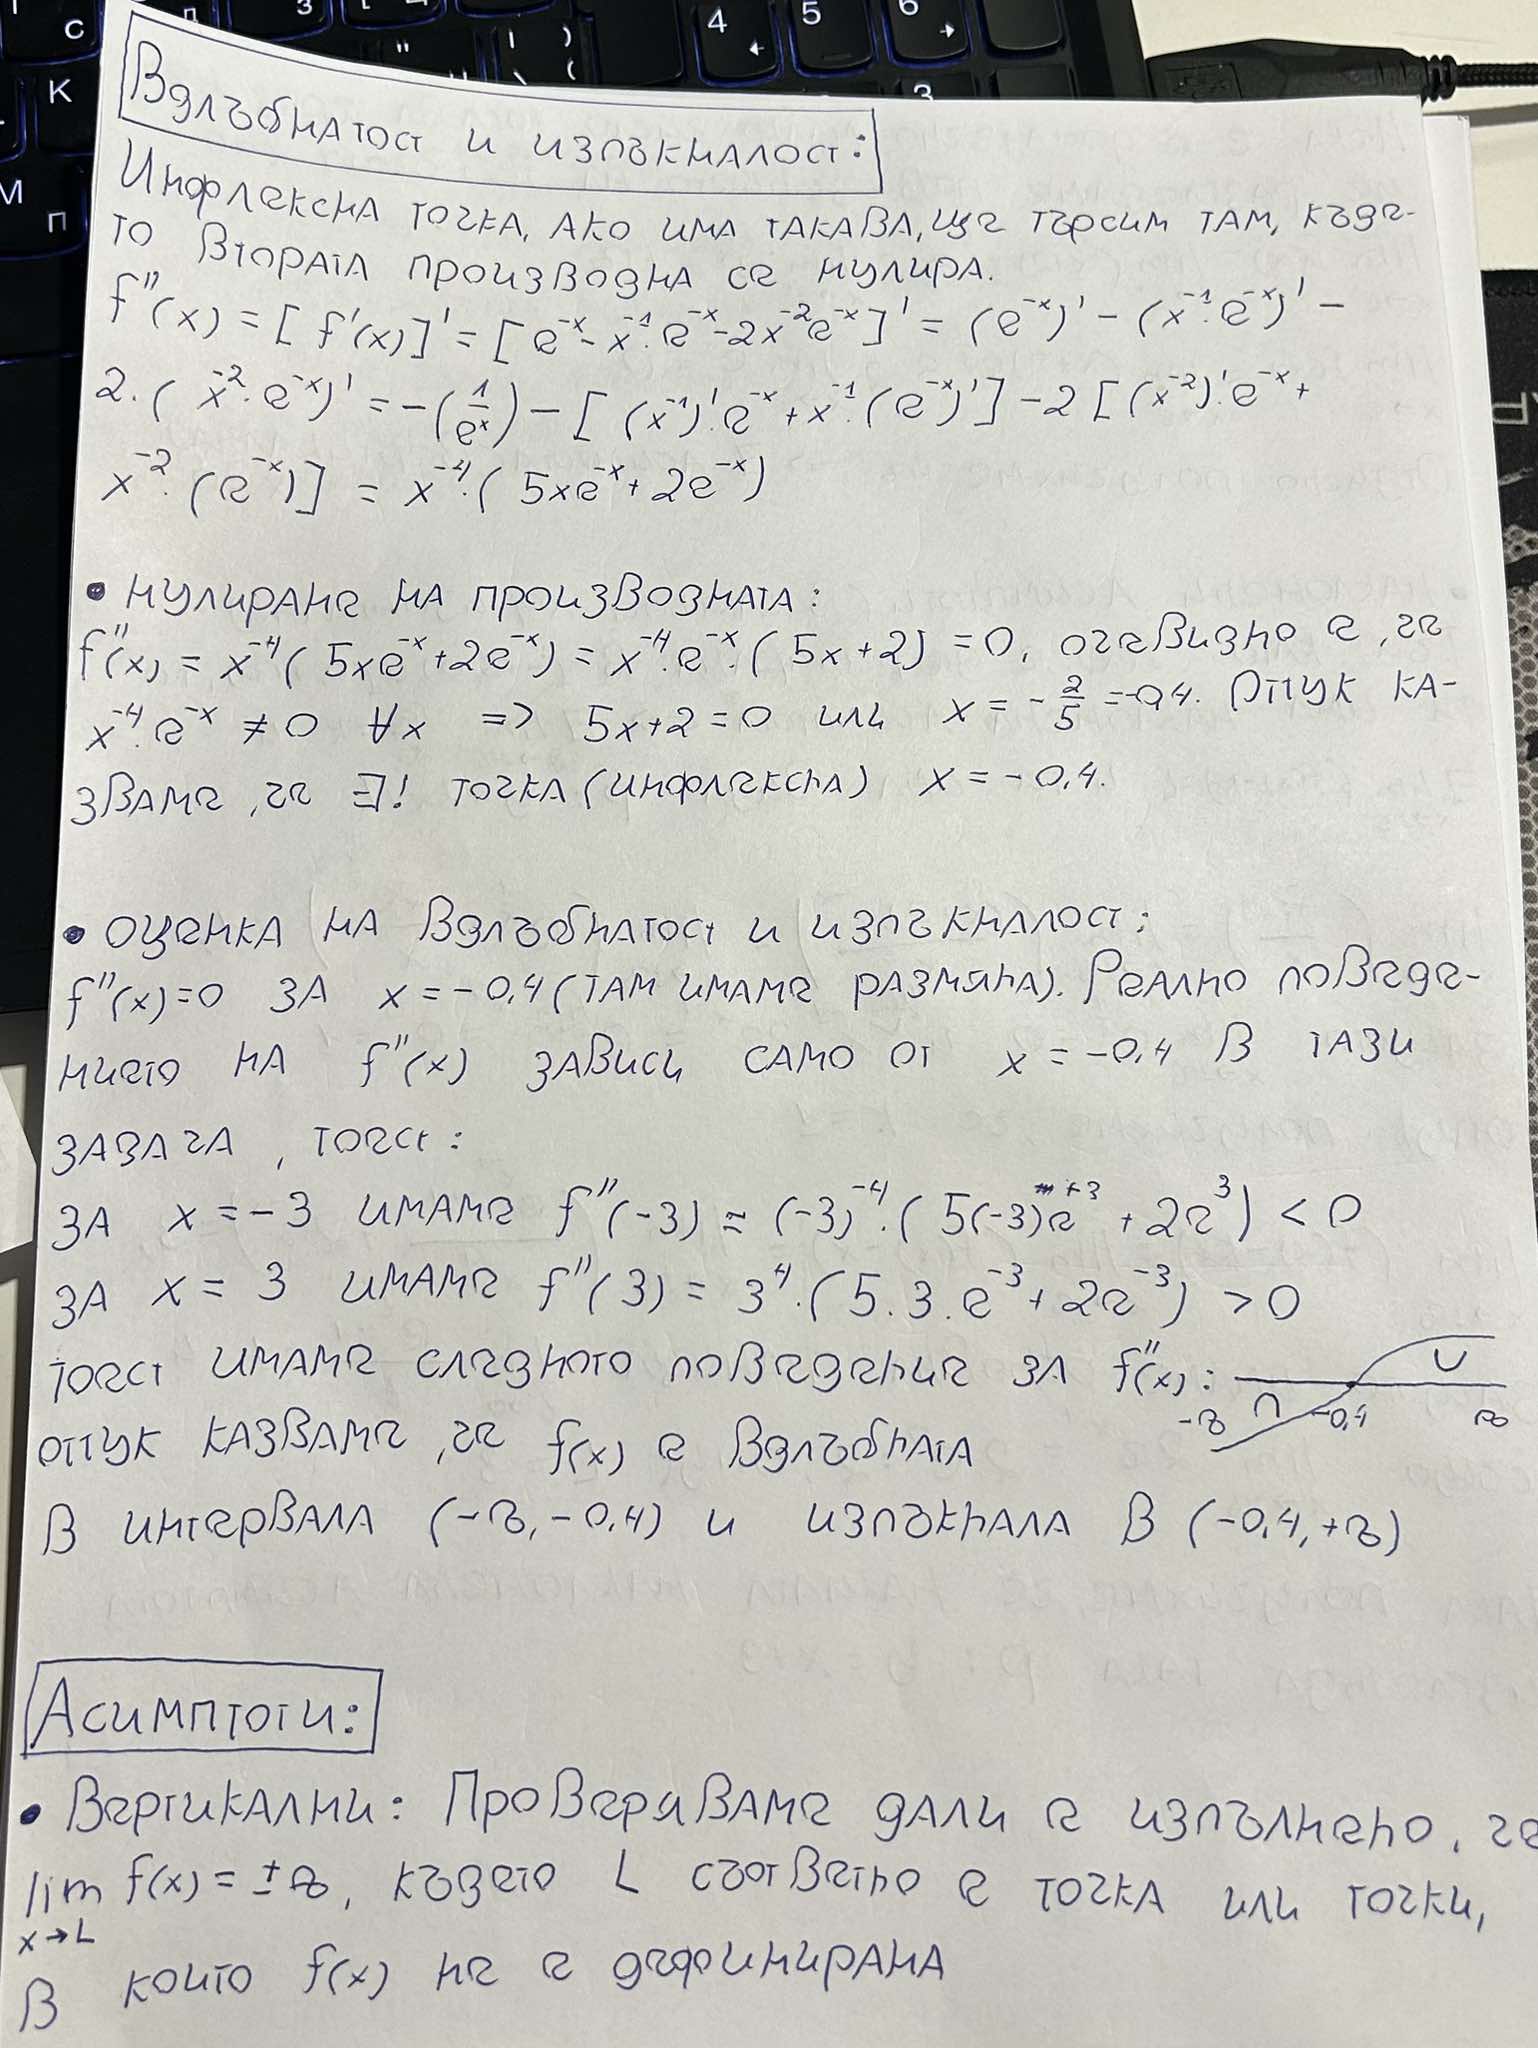 Вдлъбнатост и изпъкналост:
Инфлексна точка, ако има такава, ще търсим там, къде-
то втората производна се нулира.
f''(x) = [f'(x)]' = [e^-x - x^-1.e^-x - 2x^-2e^-x]' = (e^-x)' - (x^-1.e^-x)' -
2.(x^-2.e^-x)' = -(1/e^x) - [(x^-1)'.e^-x + x^-1.(e^-x)'] - 2[(x^-2)'.e^-x +
x^-2.(e^-x)] = x^-4.(5xe^-x + 2e^-x)
• нулиране на производната:
f''(x) = x^-4(5xe^-x + 2e^-x) = x^-4.e^-x.(5x + 2) = 0, очевидно е, че
x^-4.e^-x ≠ 0 ∀x => 5x + 2 = 0 или x = -2/5 = -0,4. Оттук ка-
зваме, че ∃! точка (инфлексна) x = -0,4.
• оценка на вдлъбнатост и изпъкналост:
f''(x) = 0 за x = -0,4 (там имаме размяна). Реално поведе-
нието на f''(x) зависи само от x = -0,4 в тази
задача, тоест:
за x = -3 имаме f''(-3) = (-3)^-4.(5(-3)e^+3 + 2e^3) < 0
за x = 3 имаме f''(3) = 3^4.(5.3.e^-3 + 2e^-3) > 0
тоест имаме следното поведение за f''(x):
∩ ∪
-∞ -0,4 ∞
оттук казваме, че f(x) е вдлъбната
в интервала (-∞, -0,4) и изпъкнала в (-0,4, +∞)
Асимптоти:
• Вертикални: Проверяваме дали е изпълнено, че
lim f(x) = ±∞, където L съответно е точка или точки,
x→L
в които f(x) не е дефинирана